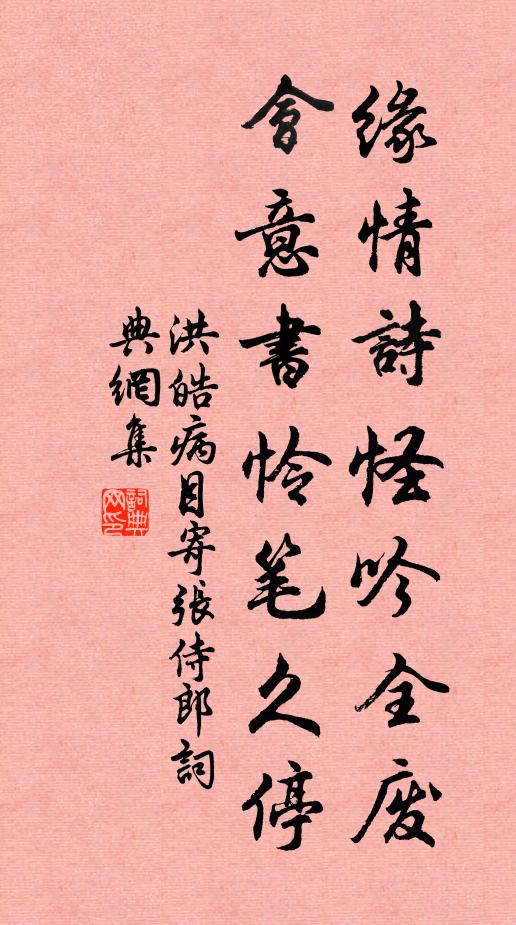 緣情詩怪吟全废
會意書怜笔久停
洪皓病目寄張侍郎詞
典網集
詞典
网印